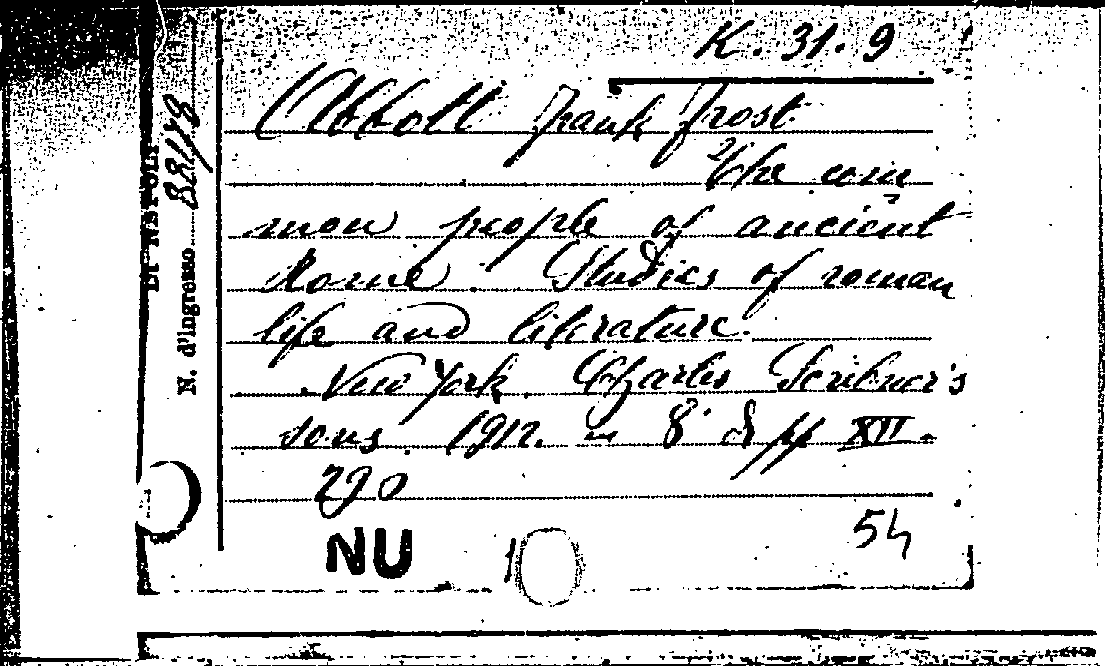 K. 31. 9
Abbott Frank Frost
The com
mon people of ancient
Rome. Studies of roman
life and literature.
New York. Charles Scribner's
sons. 1912. in 8° di pp XII.
290
54
NU
N. d'Ingresso